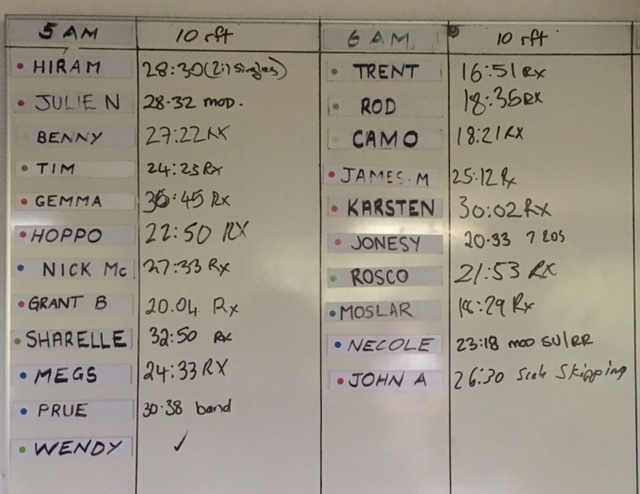 5 AM 10 rft
HIRAM 28:30 (2:1 Singles)
JULIE N 28.32 mod.
BENNY 27:22 RX
TIM 24:23 Rx
GEMMA 45 Rx
HOPPO 22:50 RX
NICK Mc 27:33 Rx
GRANT B 20.04 Rx
SHARELLE 32:50 Rx
MEGS 24:33 RX
PRUE 30.38 band
WENDY ✓
6 AM 10 rft
TRENT 16:51 Rx
ROD 18:35 RX
CAMO 18:21 RX
JAMES.M 25:12 Rx
KARSTEN 30:02 RX
JONESY 20.33
ROSCO 21:53 RX
MOSLAR 18:29 Rx
NECOLE 23:18 mod SU/RR
JOHN A 26:30 Scale Skipping